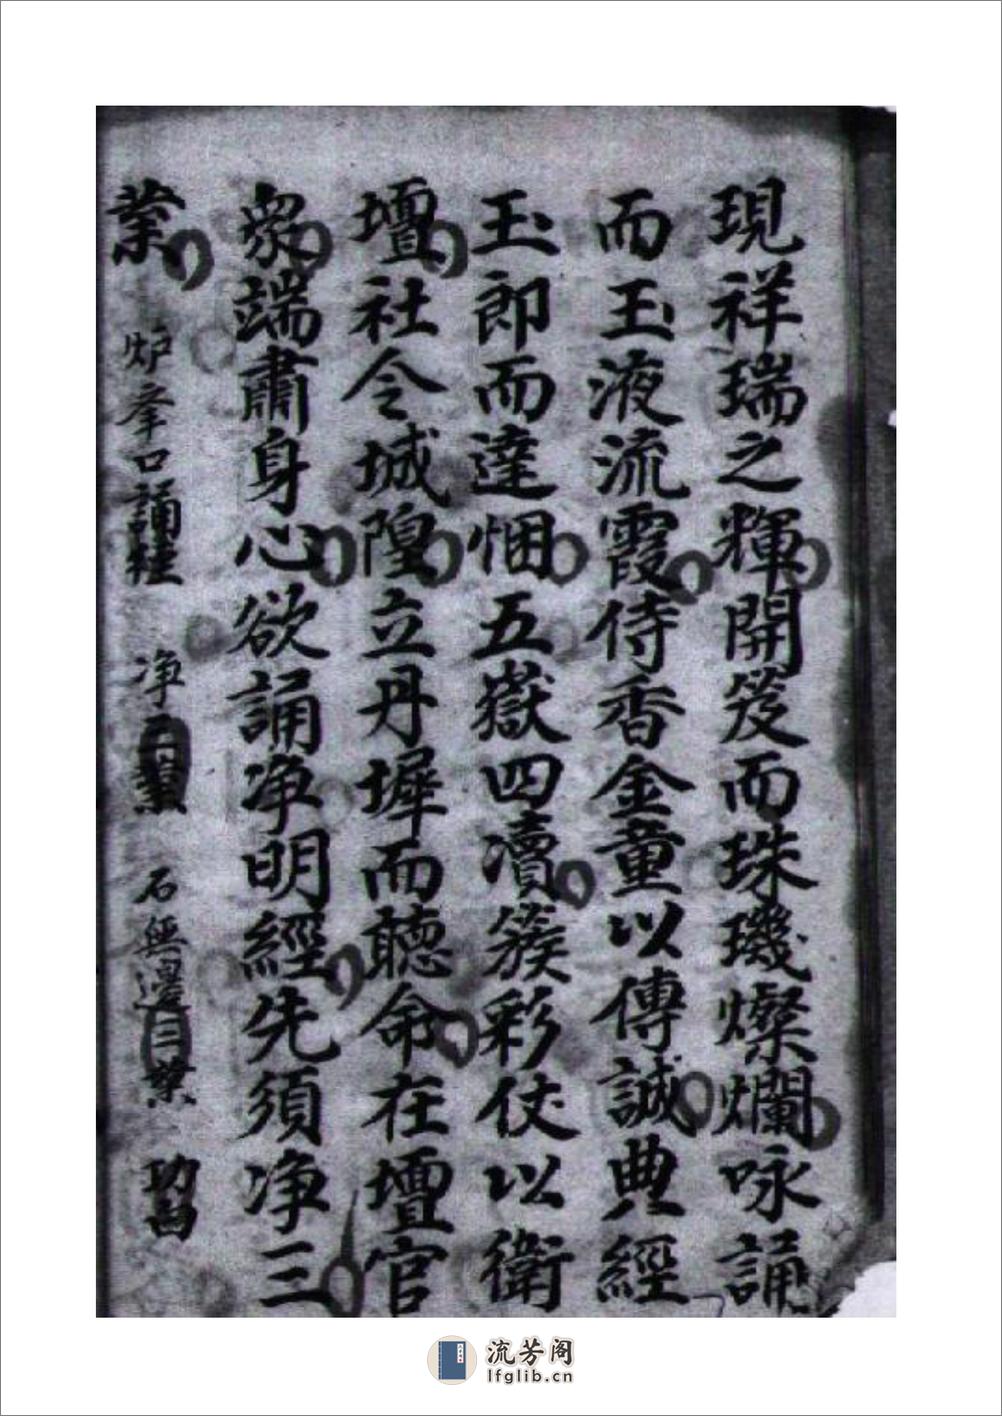 現祥瑞之輝開笈而珠璣燦爛咏誦
而玉液流霞侍香金童以傳誠典經
玉郎而達悃五嶽四瀆簇彩仗以衛
壇社令城隍立丹墀而聽命在壇官
衆端肅身心欲誦净明經先須净三
業 炉峯口誦経 净三業 石無邊三業 功曲
流芳阁
lfglib.cn